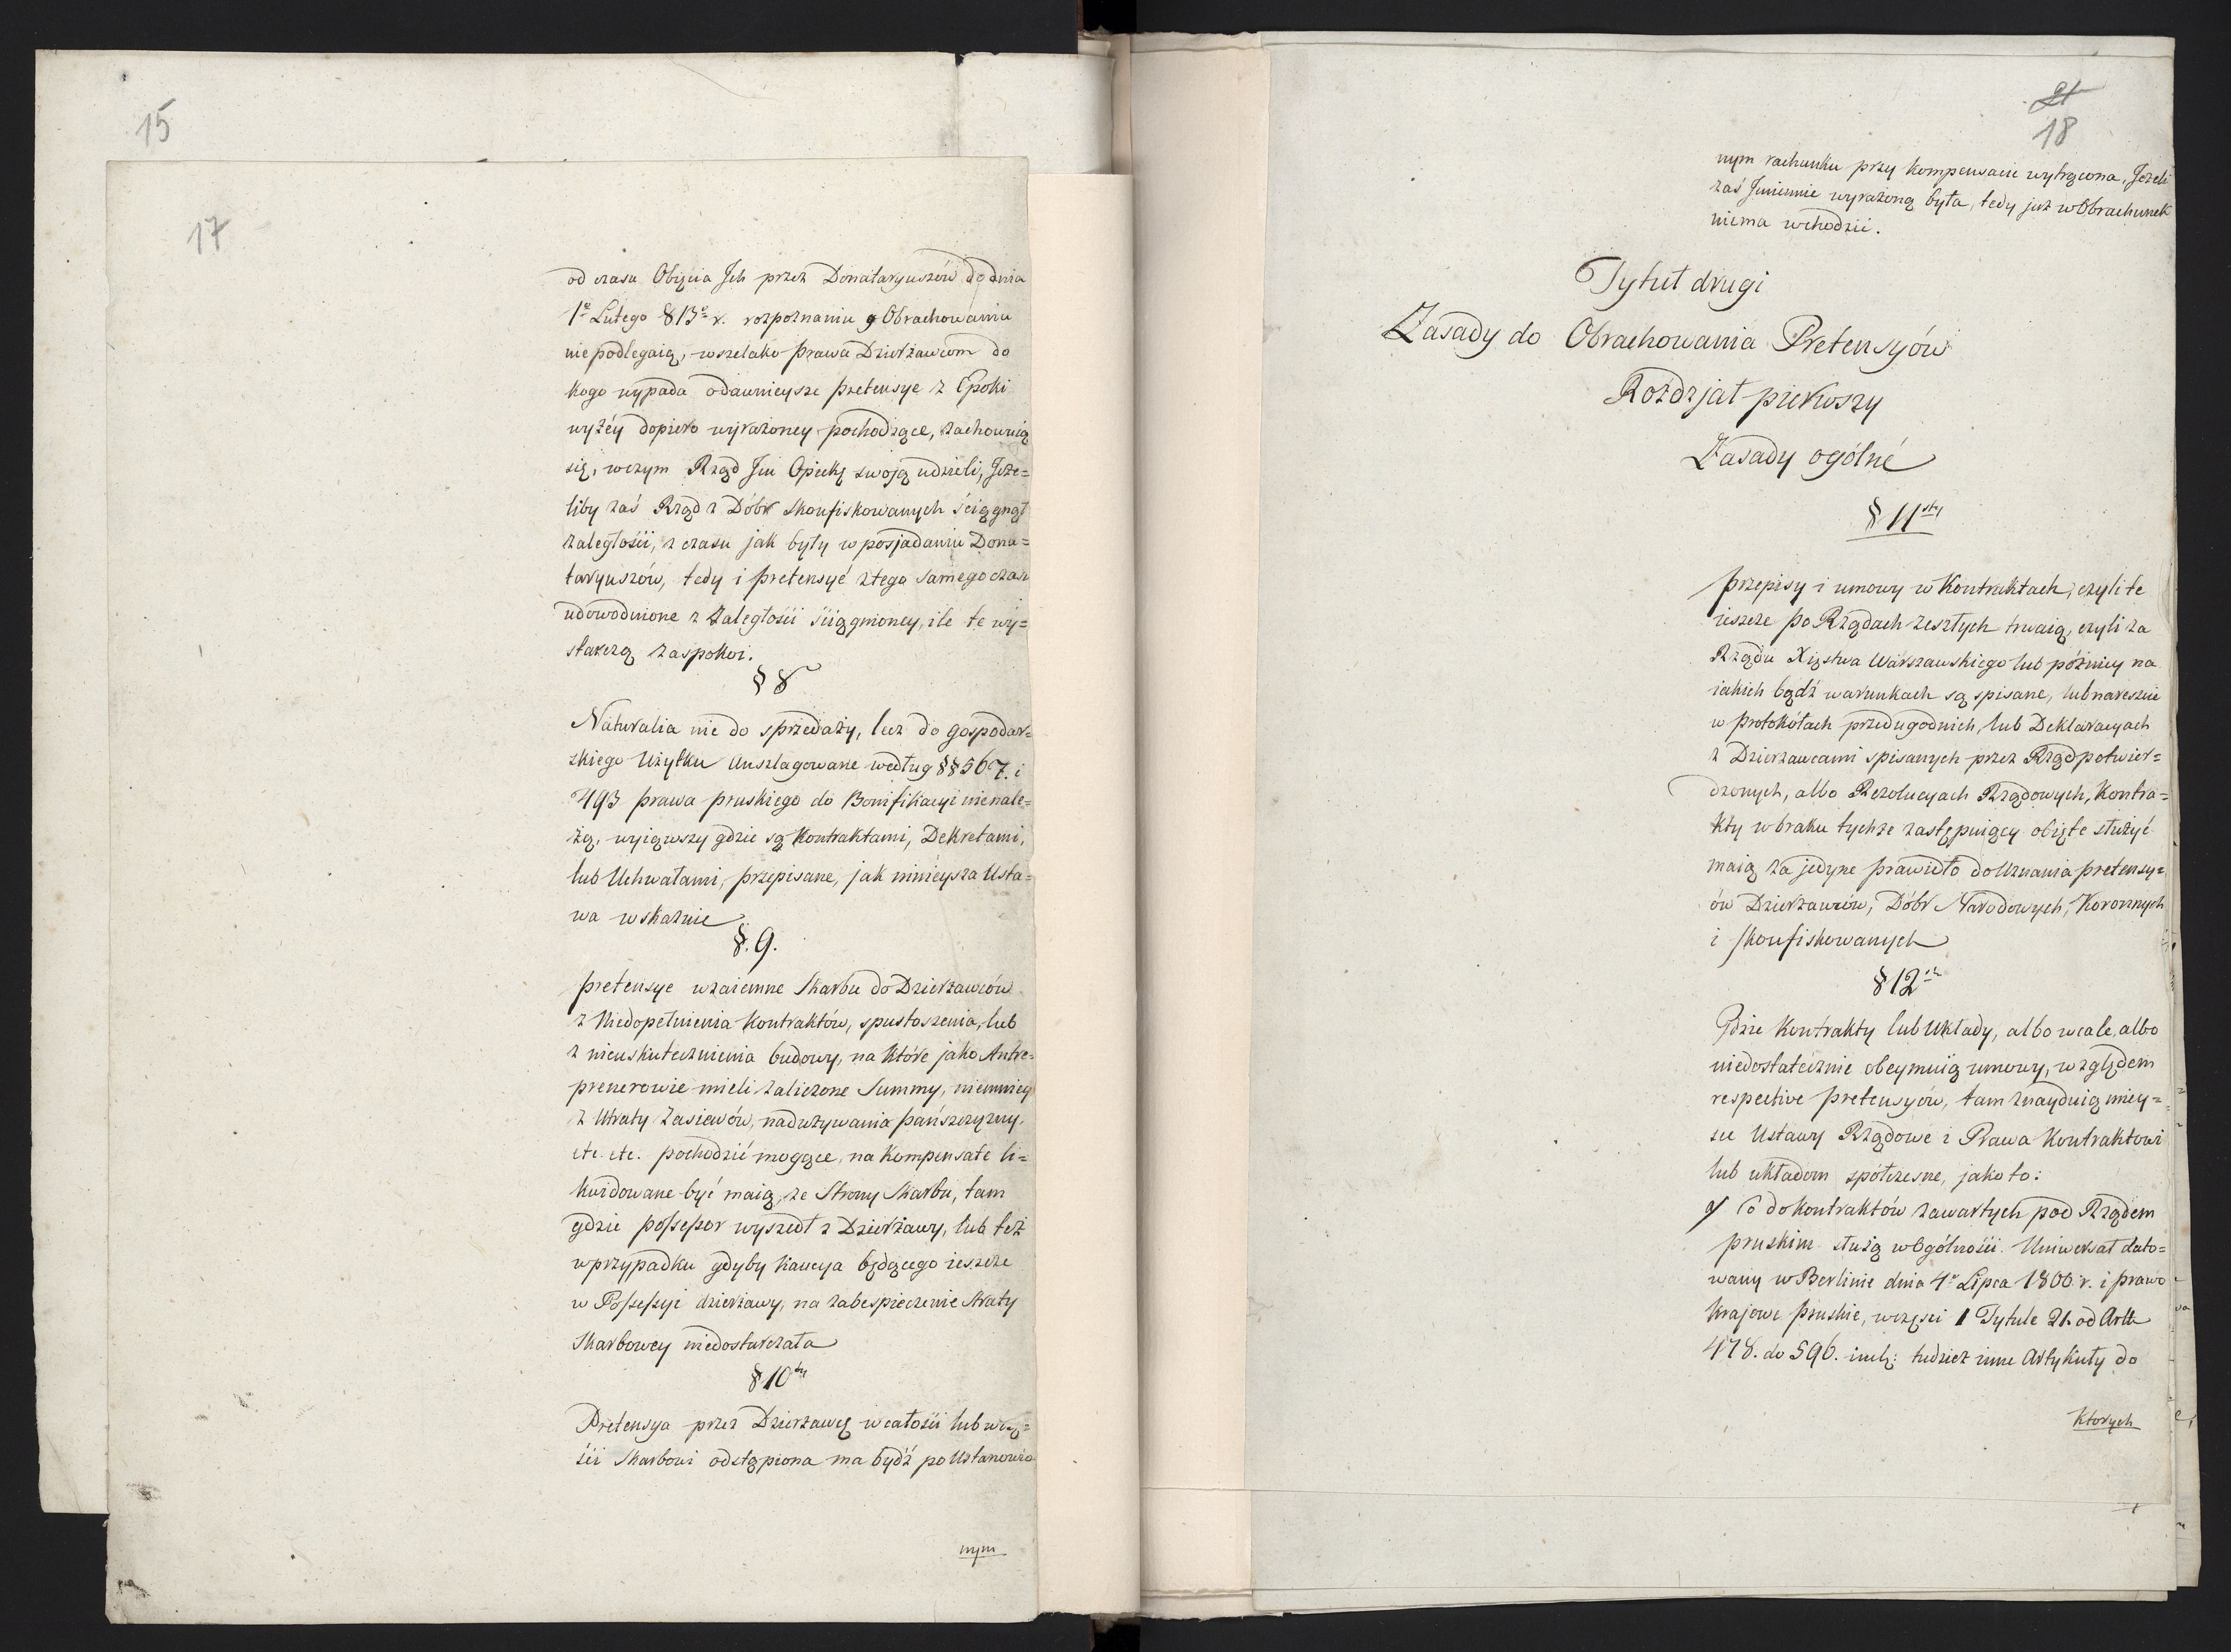 15
17
od czasu Obięcia Ich przez Donataryuszów do dnia
1º Lutego 813º r. rozpoznaniu y Obrachowaniu
niepodlegaią, wszelako prawa Dzierżawcom do
kogo wypada odawnieysze pretensye z Epoki
wyżéy dopiero wyrażoney pochodzące, zachowuią
się, wczym Rząd Im Opiekę swoją udzieli, Jeże=
liby zaś Rząd z Dóbr skonfiskowanych ściągnął
zaległości, z czasu jak były w posjadaniu Dona=
taryuszów, tedy i pretensyé ztego samego czasu
udowodnione z Zaległości ściągnioney, ile te wy=
starczą zaspokoi.
§ 8
Naturalia nie do sprzedaży, lecz do gospodar=
skiego Użytku Anszlagowane według §§ 567. i
493 prawa pruskiego do Bonifikacyi nie nale=
żą, wyiąwszy gdzie są Kontraktami, Dekretami,
lub Uchwałami, przepisane, jak ninieysza Usta=
wa wskaznie
§. 9.
pretensye wzaiemne Skarbu do Dzierżawców
z Niedopełnienia Kontraktów, spustoszenia, lub
z nieuskutecznienia budowy, na które jako Antre=
prenerowie mieli zaliczone Summy, niemniey
z Utraty Zasiewów, nadużywania pańszczyzny.
etc. etc. pochodzić mogące, na Kompensate li=
kwidowane być maią, ze Strony Skarbu, tam
gdzie possessor wyszedł z Dzierżawy, lub też
wprzypadku gdyby Kaucya będącego ieszcze
w Possessyi dzierżawy, na zabespieczenie straty
Skarbowey niedostarczała
§ 10ty
Pretensya przez Dzierżawcę w całości lub w czę=
ści Skarbowi odstąpiona ma bydź po Ustanowio
nym
21
18
nym rachunku przy kompensacie wytrącona, Jeżeli
zaś Imiennie wyrażoną była, tedy już w Obrachunek
niema wchodzić.
Tytuł drugi
Zasady do Obrachowania Pretensyów
Rozdzjał pierwszy
Zasady ogólné
§ 11sty
przepisy i umowy w Kontraktach, czyli te
ieszcze po Rządach zeszłych trwaią, czyli za
Rządu Xięstwa Warszawskiego lub późniey na
iakich bądź warunkach są spisane, lub nareszcie
w protokółach przedugodnich, lub Deklaracyach
z Dzierżawcami spisanych przez Rząd potwier=
dzonych, albo Rezolucyach Rządowych, Kontra=
kty w braku tychże zastępuiący obięte służyć
maią za jedyne prawidło do Uznania pretensy=
ów Dzierżawców, Dóbr Narodowych, Koronnych
i skonfiskowanych
§ 12
Gdzie Kontrakty lub Układy, albo wcale, albo
niedostatecznie obeymuią umowy, względem
respective pretensyów, tam znayduią miey=
sce Ustawy Rządowe i Prawa Kontraktowi
lub układom spółczesne, jako to:
a/ Co do Kontraktów zawartych pod Rządem
pruskim służą w Ogólności. Uniwersał dato=
wany w Berlinie dnia 4º Lipca 1800. r. i prawo
krajowe pruskie, wczęści 1 Tytule 21. od Artt
478. do 596. incl: tudzież inne Artykuły do
Których